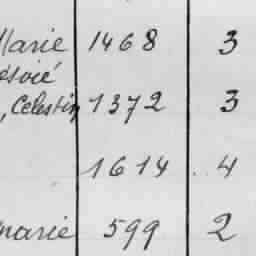 Marie 1468 3
ésoié
, Celestin 1372 3
1614 4
marie 599 2